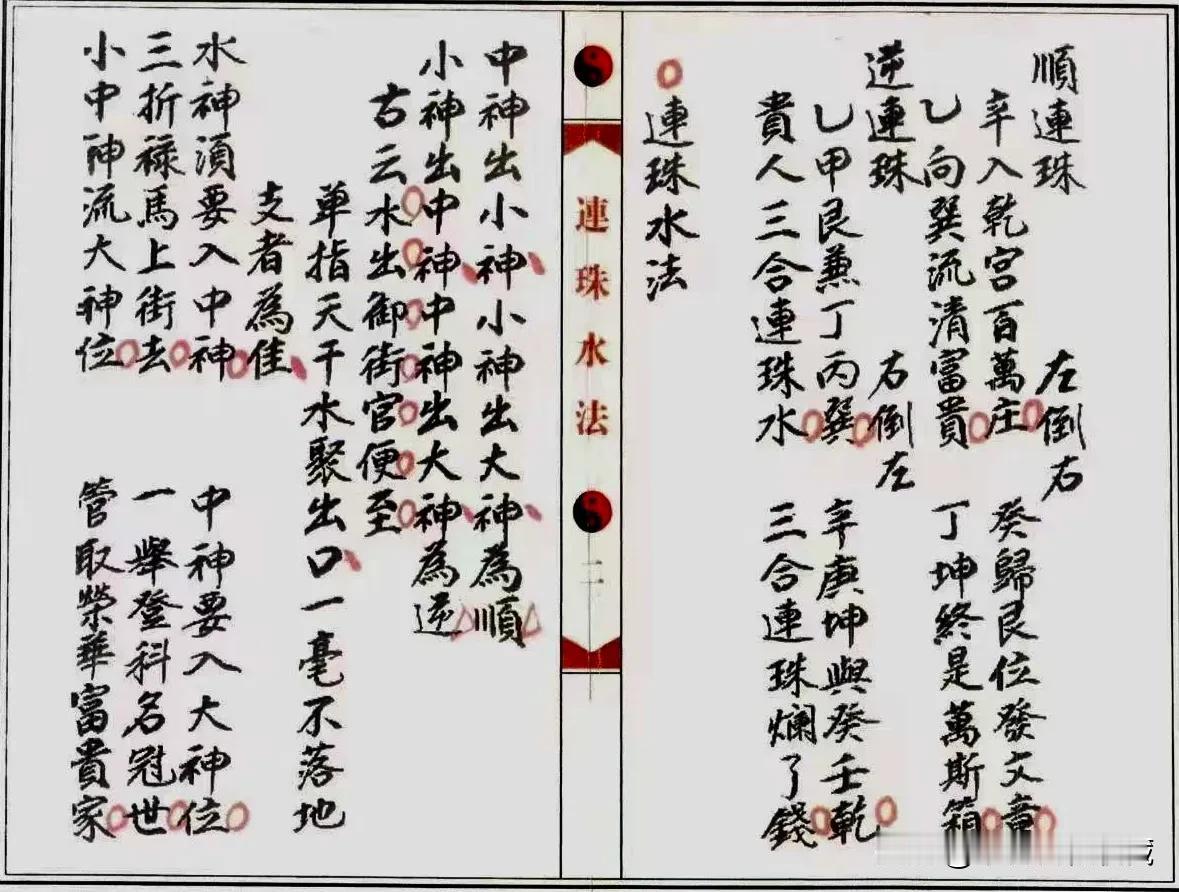 順連珠 左倒右
辛入乾宮百萬庄 癸歸艮位發文章
乙向巽流清富貴 丁坤終是萬斯箱
逆連珠 右倒左
乙甲艮兼丁丙巽 辛庚坤與癸壬乾
貴人三合連珠水 三合連珠爛了錢
○連珠水法
連珠水法
二
中神出小神小神出大神為順
小神出中神中神出大神為逆
古云水出御街官便至
单指天干水聚出口一毫不落地
支者為佳
水神須要入中神 中神要入大神位
三折禄馬上街去 一舉登科名冠世
小中神流大神位 管取榮華富貴家